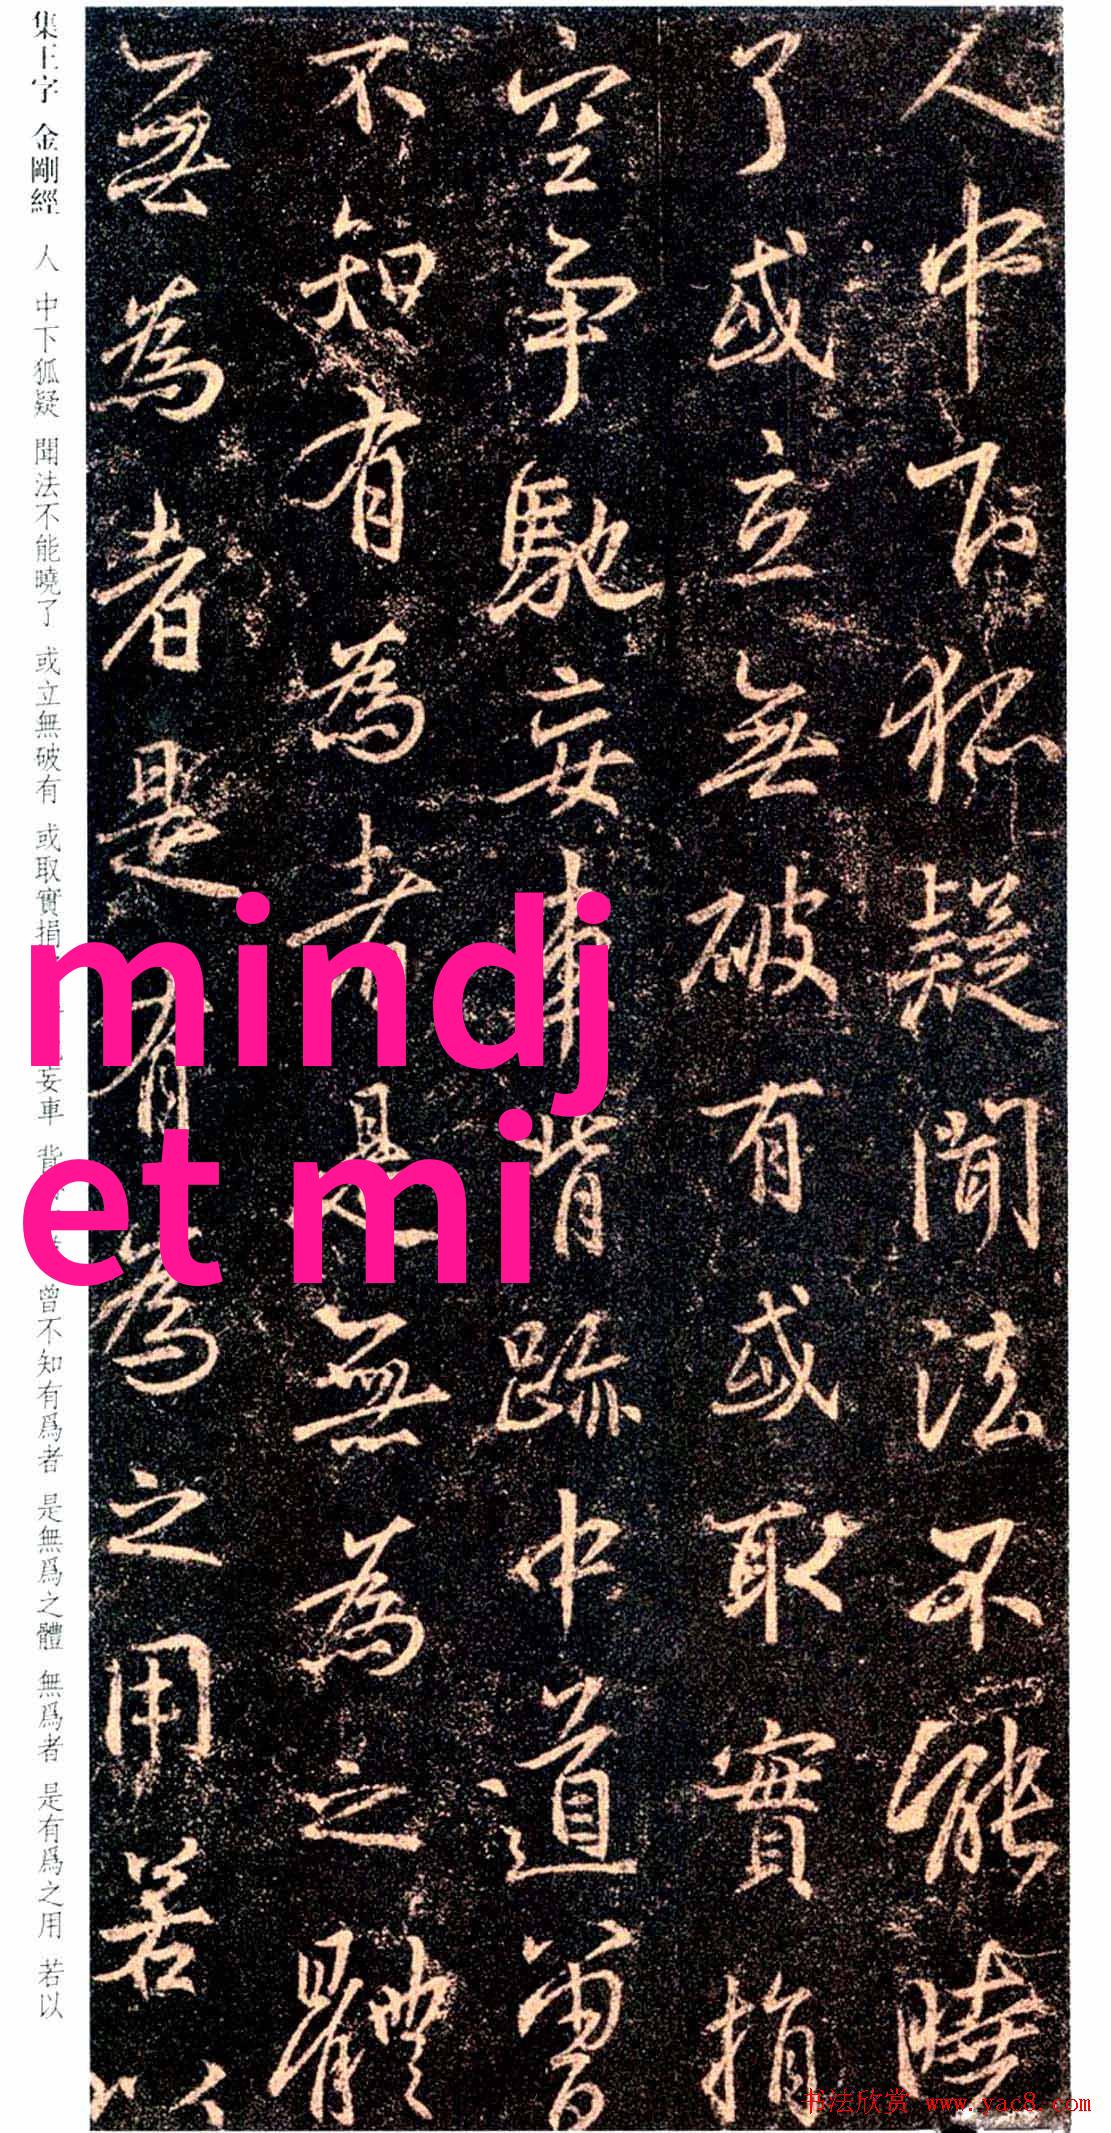 人中下狐疑聞法不能曉
了或立無破有或取實捐
空爭馳妄車背跡中道曽
不知有為者是無為之體
無為者是有為之用若以
集王字 金剛經 人 中下狐疑 聞法不能曉了 或立無破有 或取實捐 妄車 背 曾不知有爲者 是無爲之體 無爲者 是有爲之用 若以
mindj
et mi
书法欣赏 www.yac8.com